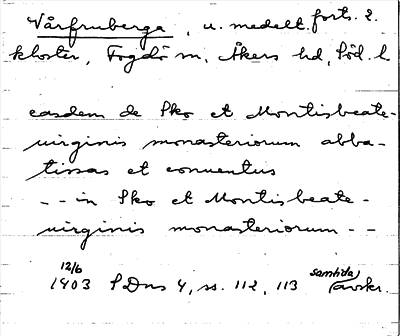 Vårfruberga, u. medelt. forts. 2.
kloster, Fogdö sn, Åkers hd, Söd. l
easdem de Sko et Montisbeate-
uirginis monasteriorum abba-
tissas et conuentus
- - in Sko et Montisbeate-
uirginis monasteriorum - -
12/6
1403 SDns 4, ss. 112, 113 samtida avskr.